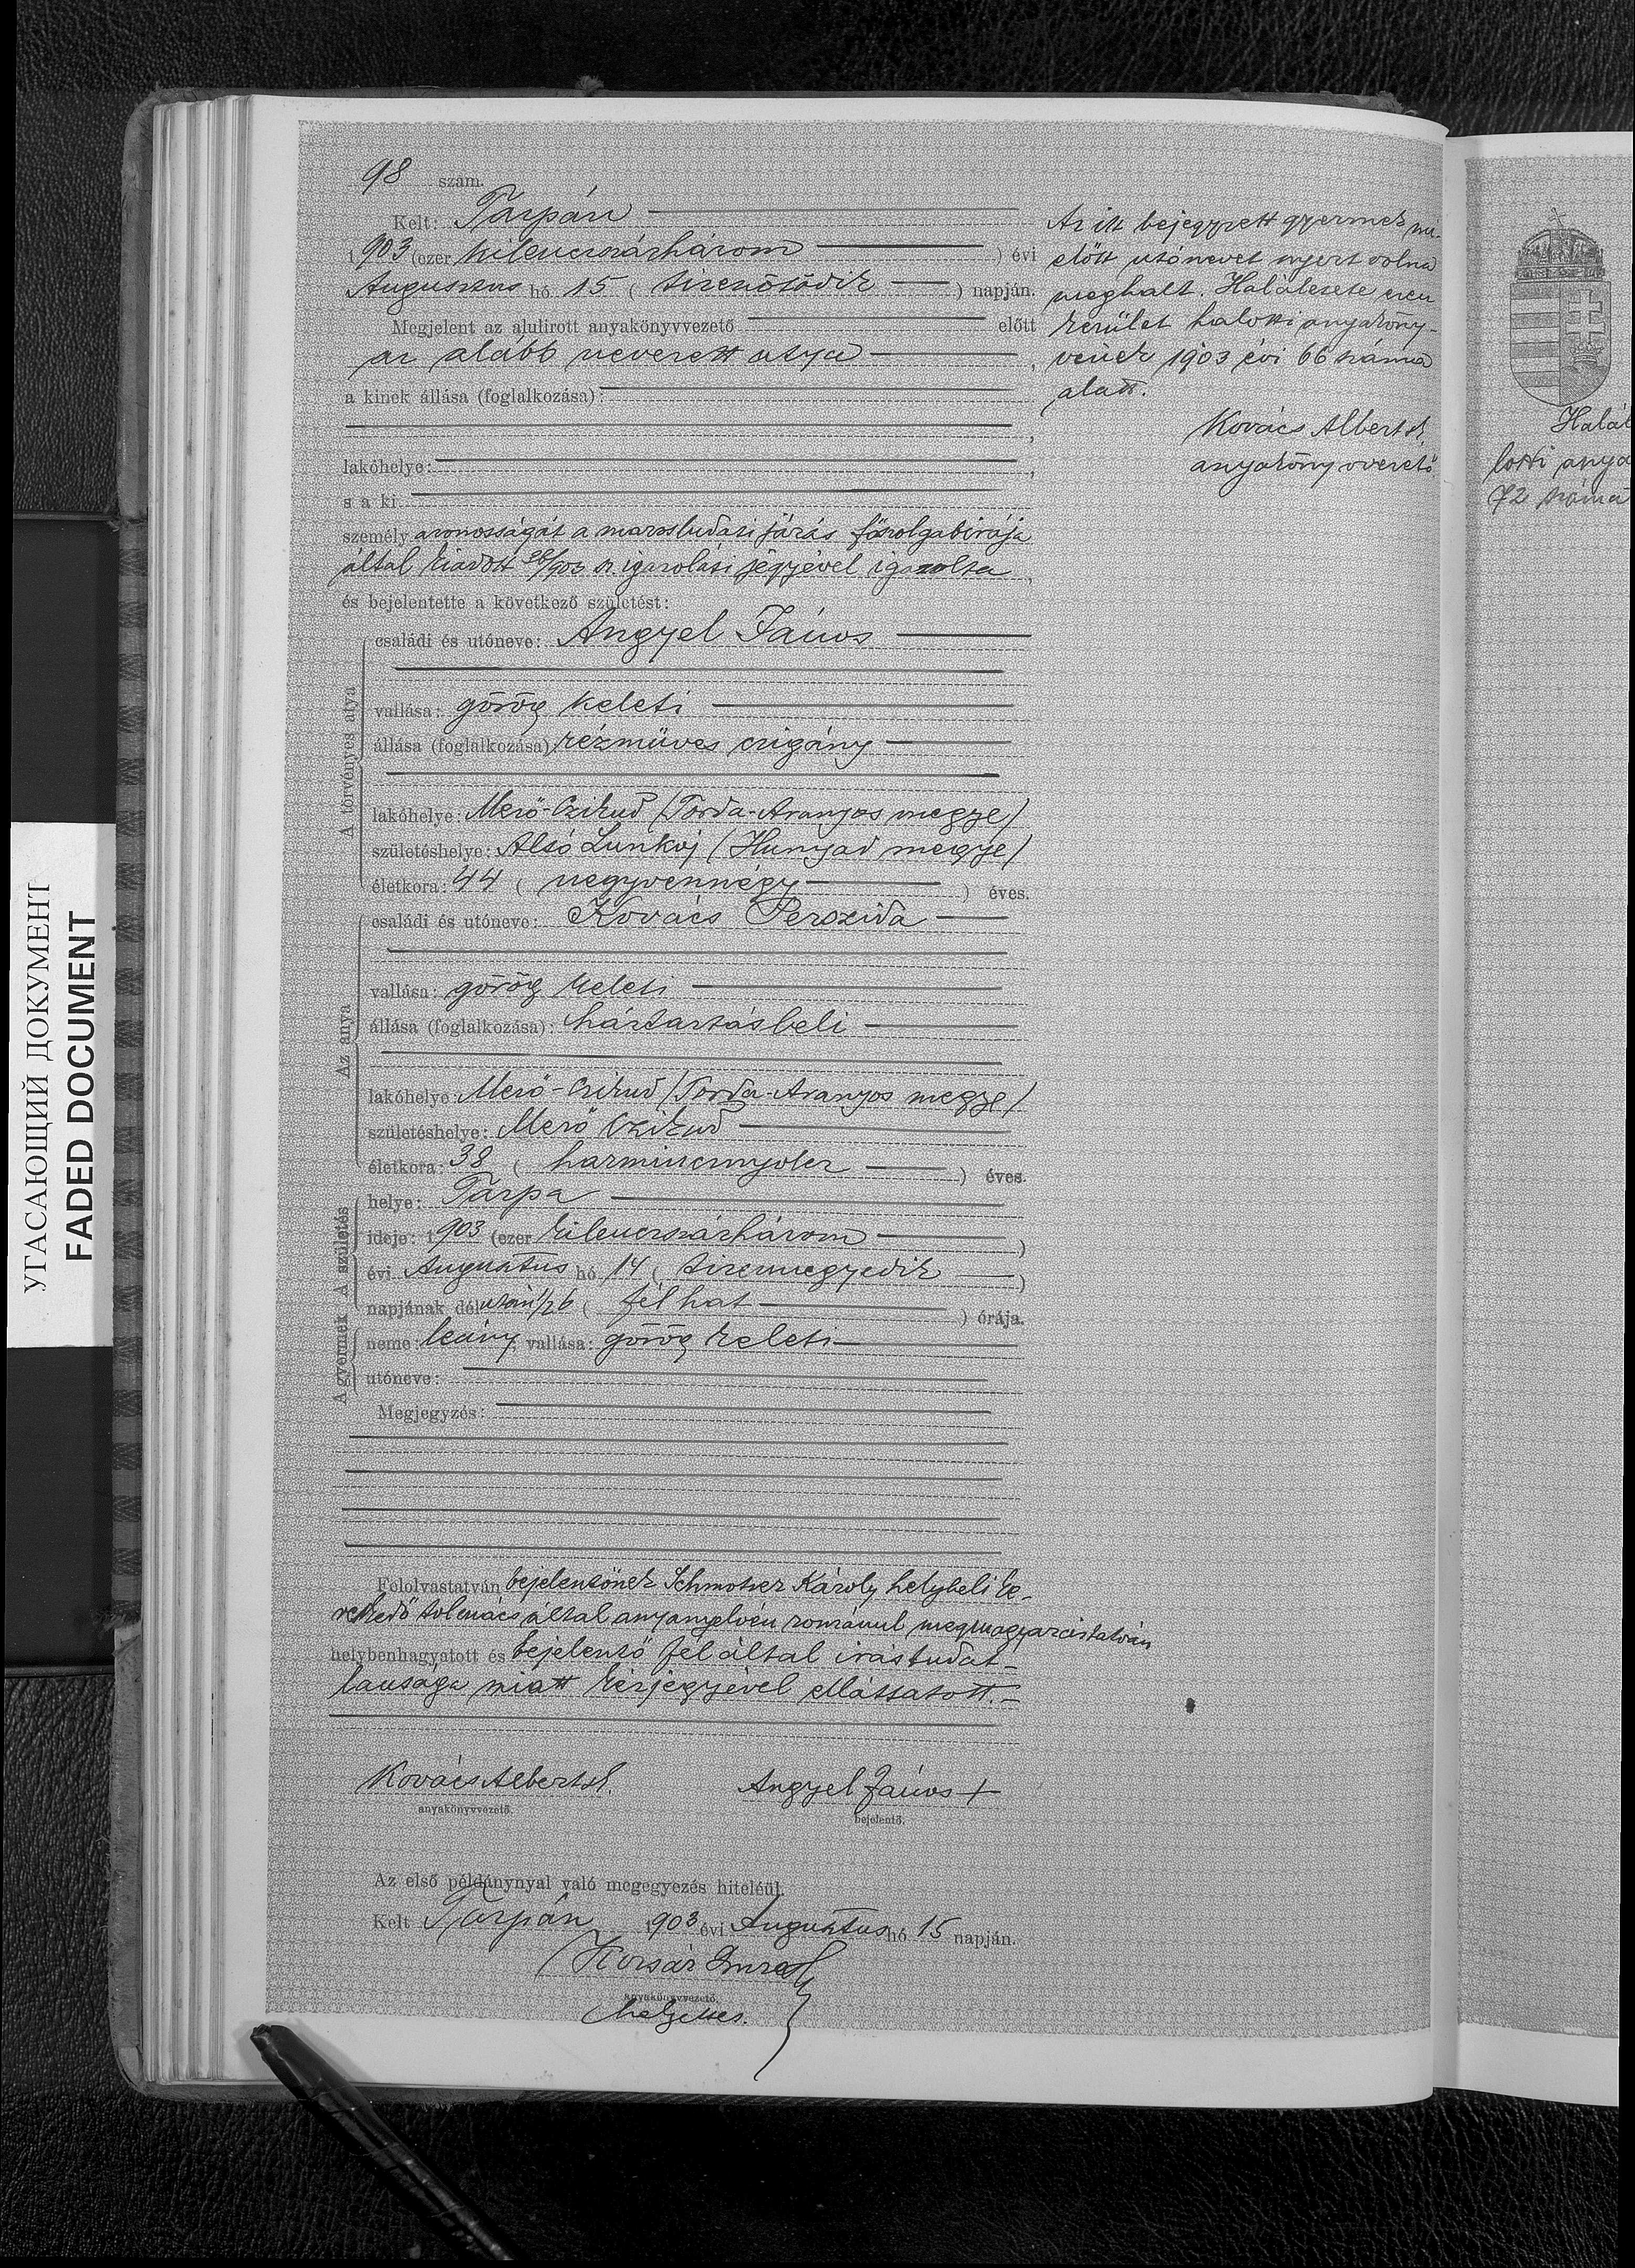 98 szám.
Kelt: Tarpán
1903 (ezer kilenczszázhárom) évi
Augusztus hó 15 (tizenötödik) napján.
Megjelent az alulirott anyakönyvvezető előtt
az alább nevezett atya,
a kinek állása (foglalkozása):
lakóhelye:
s a ki
személyazonosságát a marosludasi járás főszolgabirája
által kiadott 26/903 sz. igazolási jegyével igazolta,
és bejelentette a következő születést:
A törvényes atya
családi és utóneve: Angyel János
vallása: görög keleti
állása (foglalkozása): rézműves czigány
lakóhelye: Mező-Czikud (Torda-Aranyos megye)
születéshelye: Alsó Lunkoj (Hunyad megye)
életkora: 44 (negyvennégy) éves.
Az anya
családi és utóneve: Kovács Perszida
vallása: görög keleti
állása (foglalkozása): háztartásbeli
lakóhelye: Mező-Czikud (Torda-Aranyos megye)
születéshelye: Mező Czikud
életkora: 38 (harmincznyolcz) éves.
A születés
helye: Tarpa
ideje: 1903 (ezer kilenczszázhárom)
évi Augusztus hó 14 (tizennegyedik)
napjának délután 1/2 6 (fél hat) órája.
A gyermek
neme: leány, vallása: görög keleti
utóneve:
Megjegyzés:
Felolvastatván bejelentőnek Károly helybeli ke-
reskedő tolmács által anyanyelvén románul megmagyaráztatván
helybenhagyatott és bejelentő fél által irástudat-
lansága miatt kézjegyével elláttatott.-
Kovács Albert sk.
anyakönyvvezető.
Angyel János +
bejelentő.
Az első példánynyal való megegyezés hiteléül.
Kelt Tarpán 1903 évi Augusztus hó 15 napján.
Imre
anyakönyvvezető.
helyettes.
Az itt bejegyzett gyermek mi-
előtt utónevet nyert volna
meghalt. Halálesete ezen
kerület halotti anyaköny-
vének 1903 évi 66 száma
alatt.
Kovács Albert sk.
anyakönyvvezető.
Halál
lotti anya
72 száma
УГАСАЮЩИЙ ДОКУМЕНТ
FADED DOCUMENT